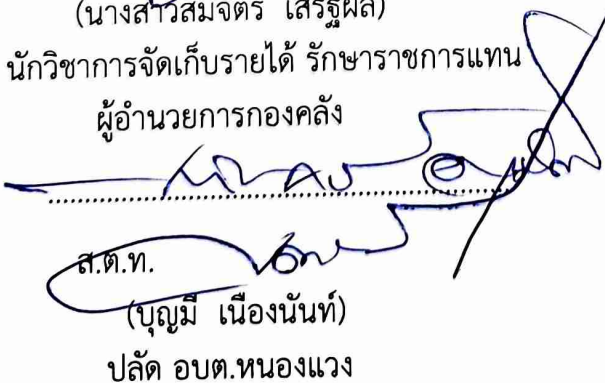 (นางสาวสมจิตร เสริฐผล)
นักวิชาการจัดเก็บรายได้ รักษาราชการแทน
ผู้อำนวยการกองคลัง
ส.ต.ท.
(บุญมี เนืองนันท์)
ปลัด อบต.หนองแวง